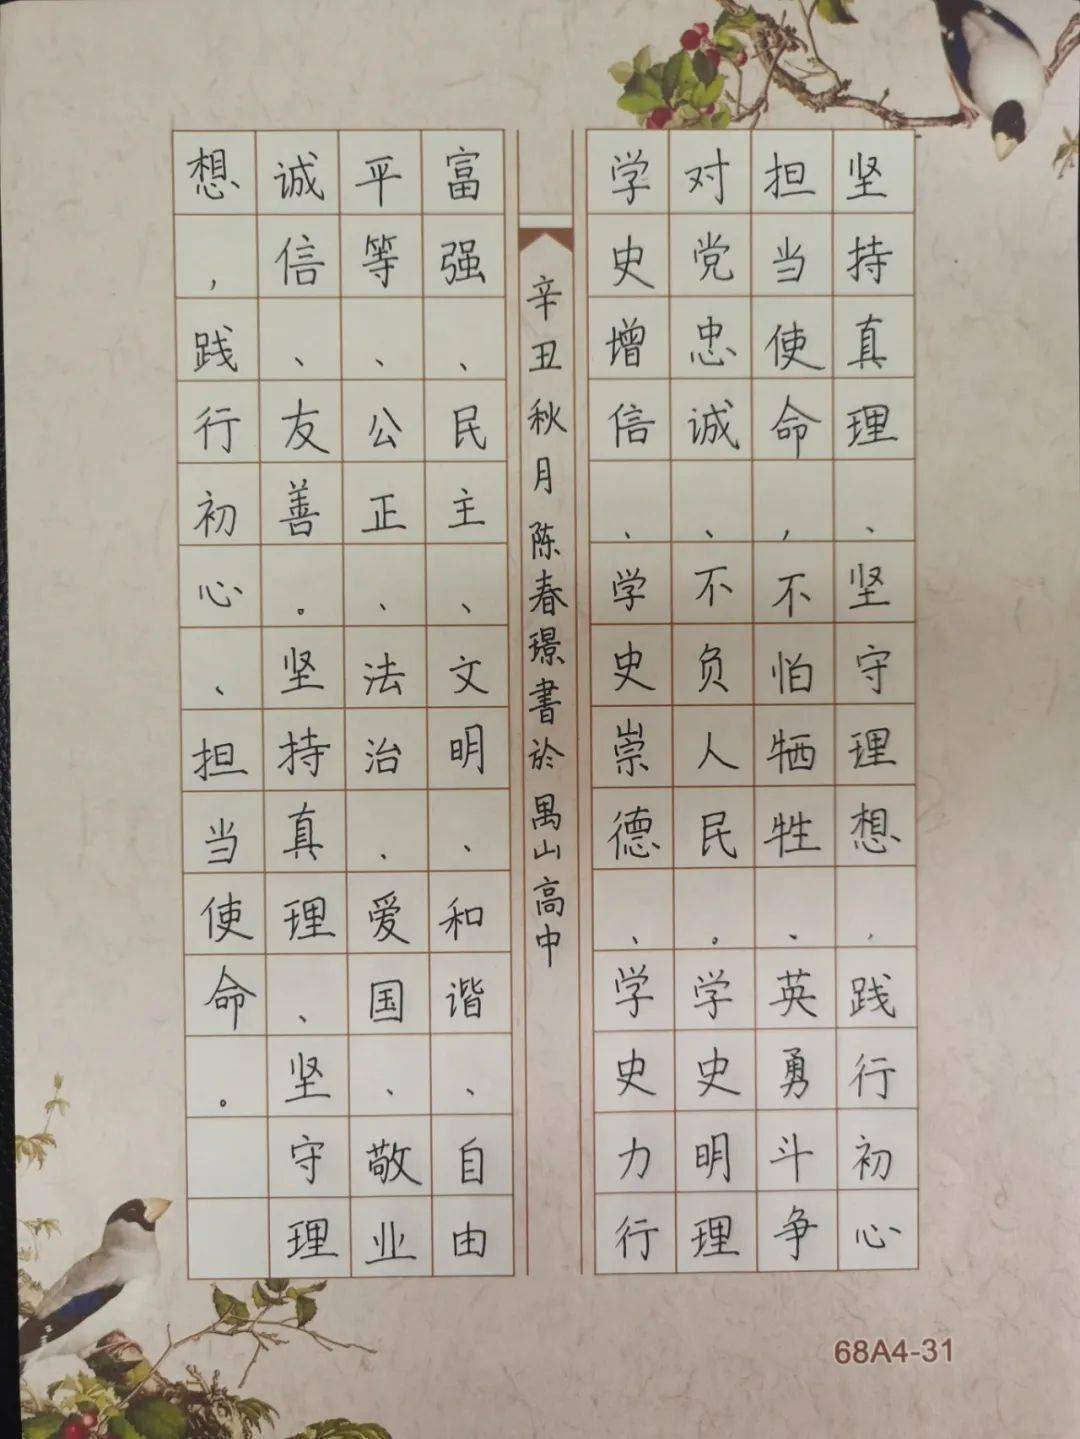 坚持真理、坚守理想,践行初心
担当使命,不怕牺牲、英勇斗争
对党忠诚、不负人民。学史明理
学史增信、学史崇德、学史力行
辛丑秋月陈春璟書於禺山高中
富强、民主、文明、和谐、自由
平等、公正、法治、爱国、敬业
诚信、友善。坚持真理、坚守理
想,践行初心、担当使命。
68A4-31